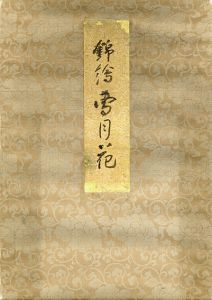 錦絵雪月花